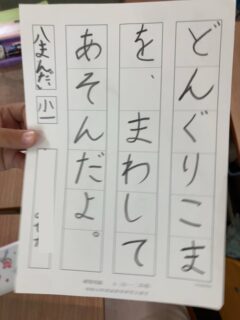 どんぐりこま
を、まわして
あそんだよ。
小一